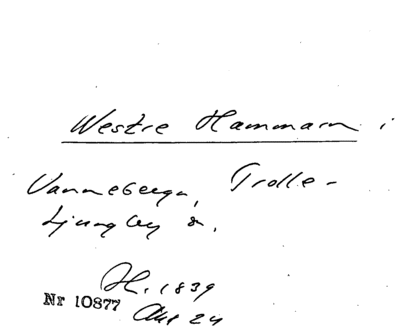 Westre Hammarn i
Vanneberga, Trolle-
Ljungby s.
H. 1839
Nr 10877
Akt 24